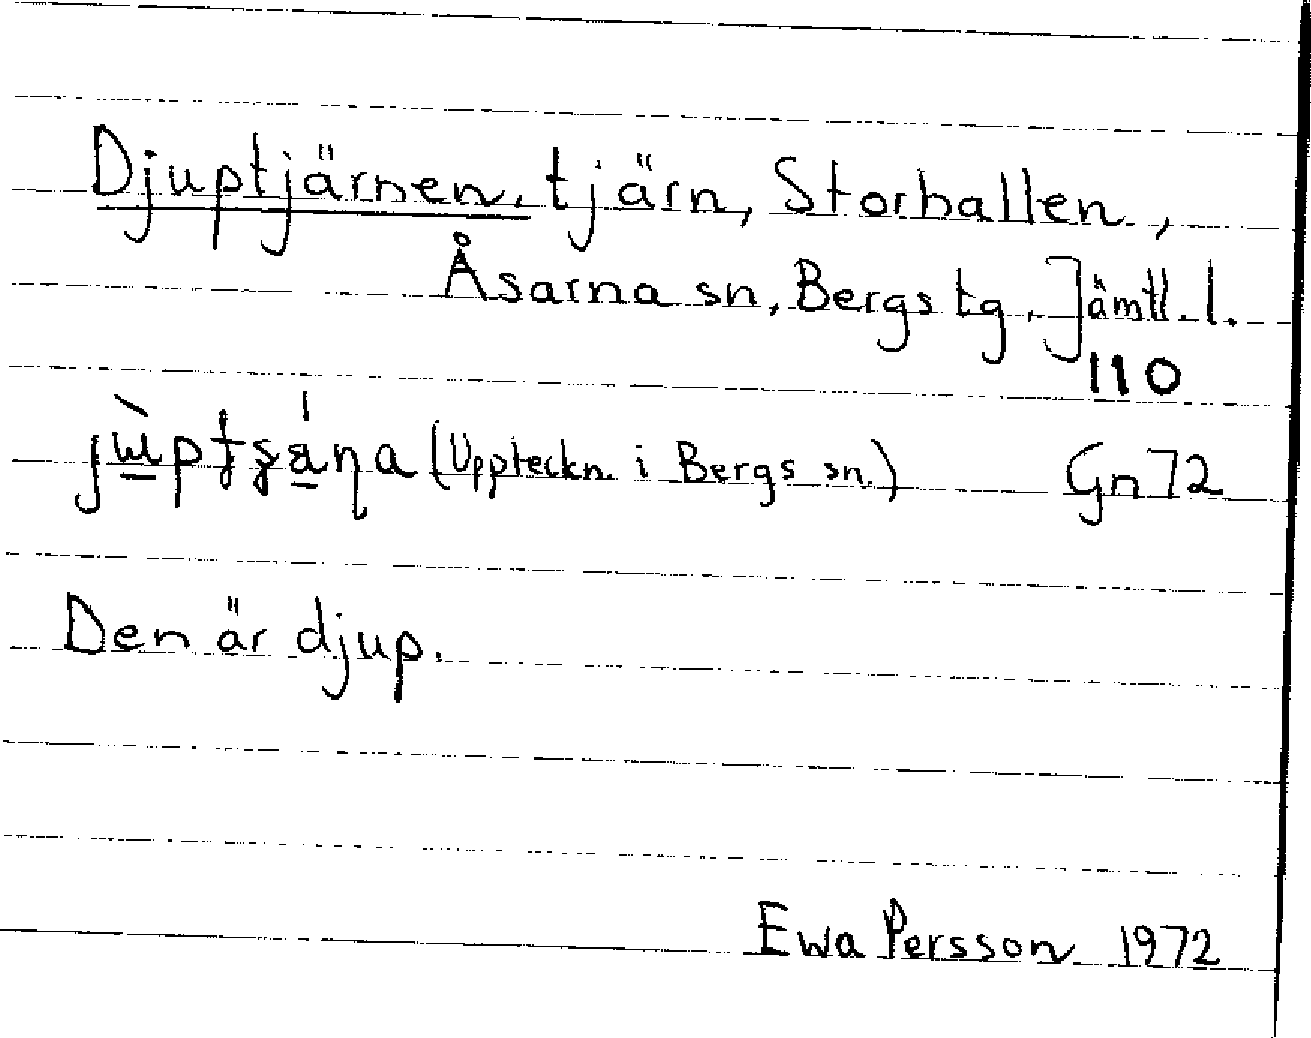 Djuptjärnen, tjärn, Storhallen,
Åsarna sn, Bergs tg, Jämtl. l.
110
(Uppteckn. i Bergs sn.) Gn 72
Den är djup.
Ewa Persson 1972